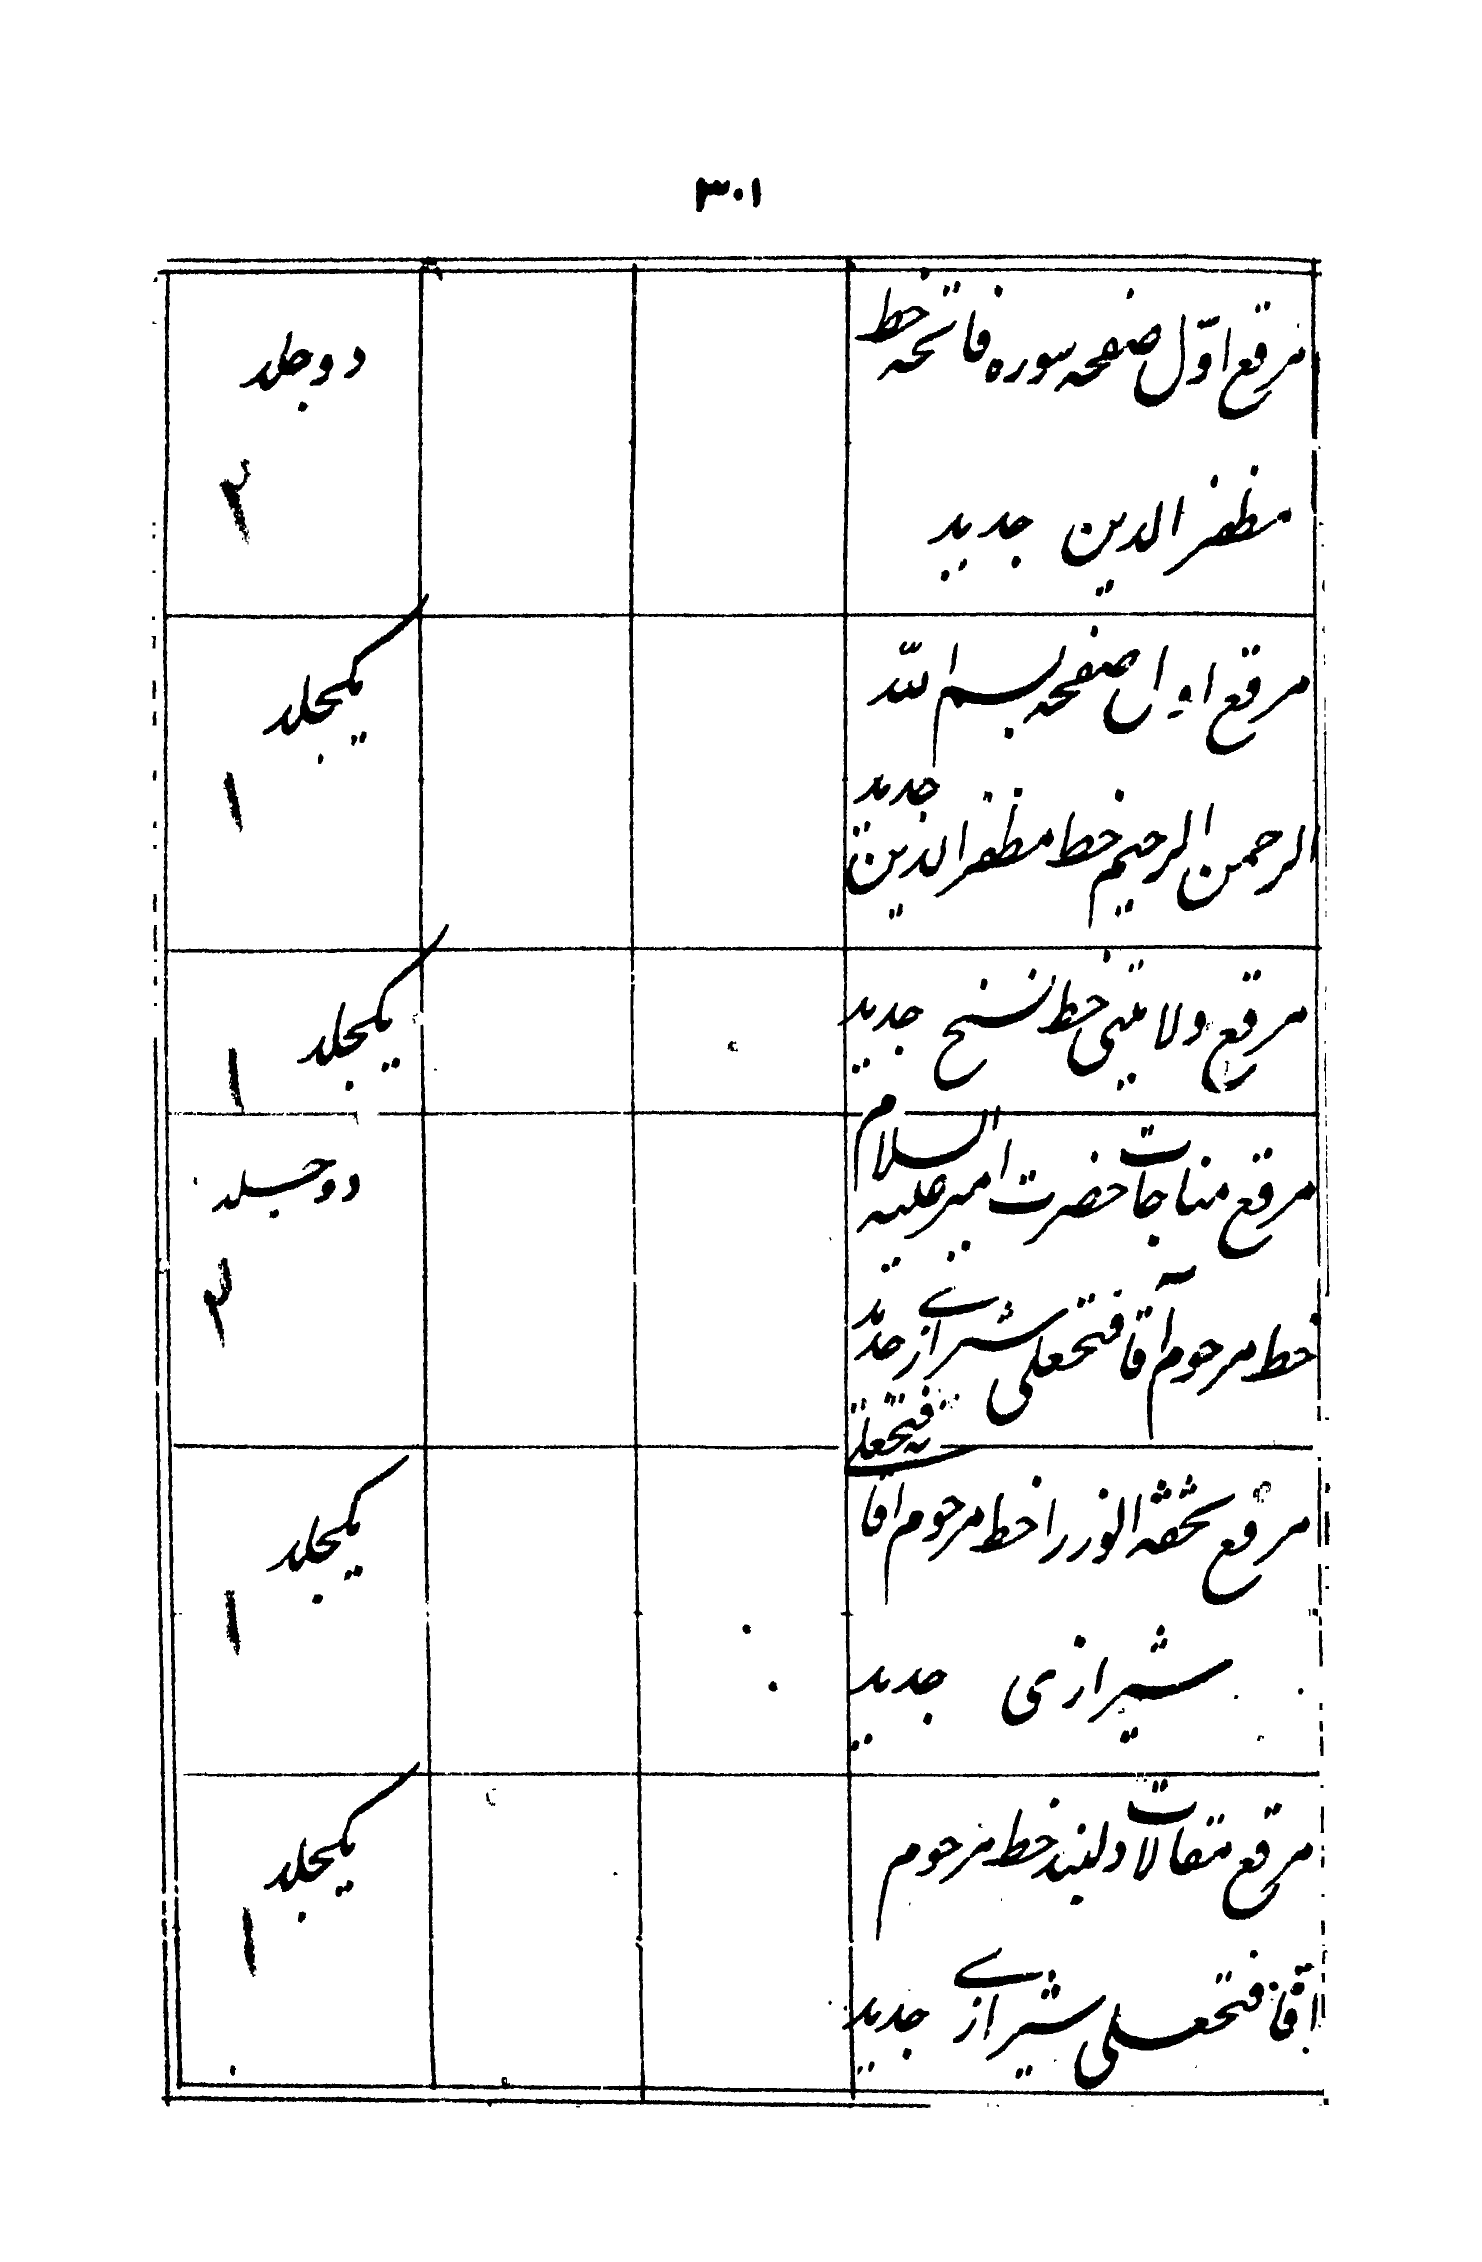 ۳۰۱
مرقع اوّل صفحه سوره فاتحه خط
مظفر الدین جدید
دو جلد
۲
مرقع اول صفحه بسم الله
الرحمن الرحیم خط مظفر الدین جدید
یکجلد
۱
مرقع ولایتی خط نسخ جدید
یکجلد
۱
مرقع مناجات حضرت امیر علیه السلام
خط مرحوم آقا فتحعلی شیرازے جدید
دو جلد
۲
مرقع تحفة الوزرا خط مرحوم اقا فتحعلی
شیرازی جدید
یکجلد
۱
مرقع مقالات خط مرحوم
اقا فتحعلی شیرازے جدید
یکجلد
۱